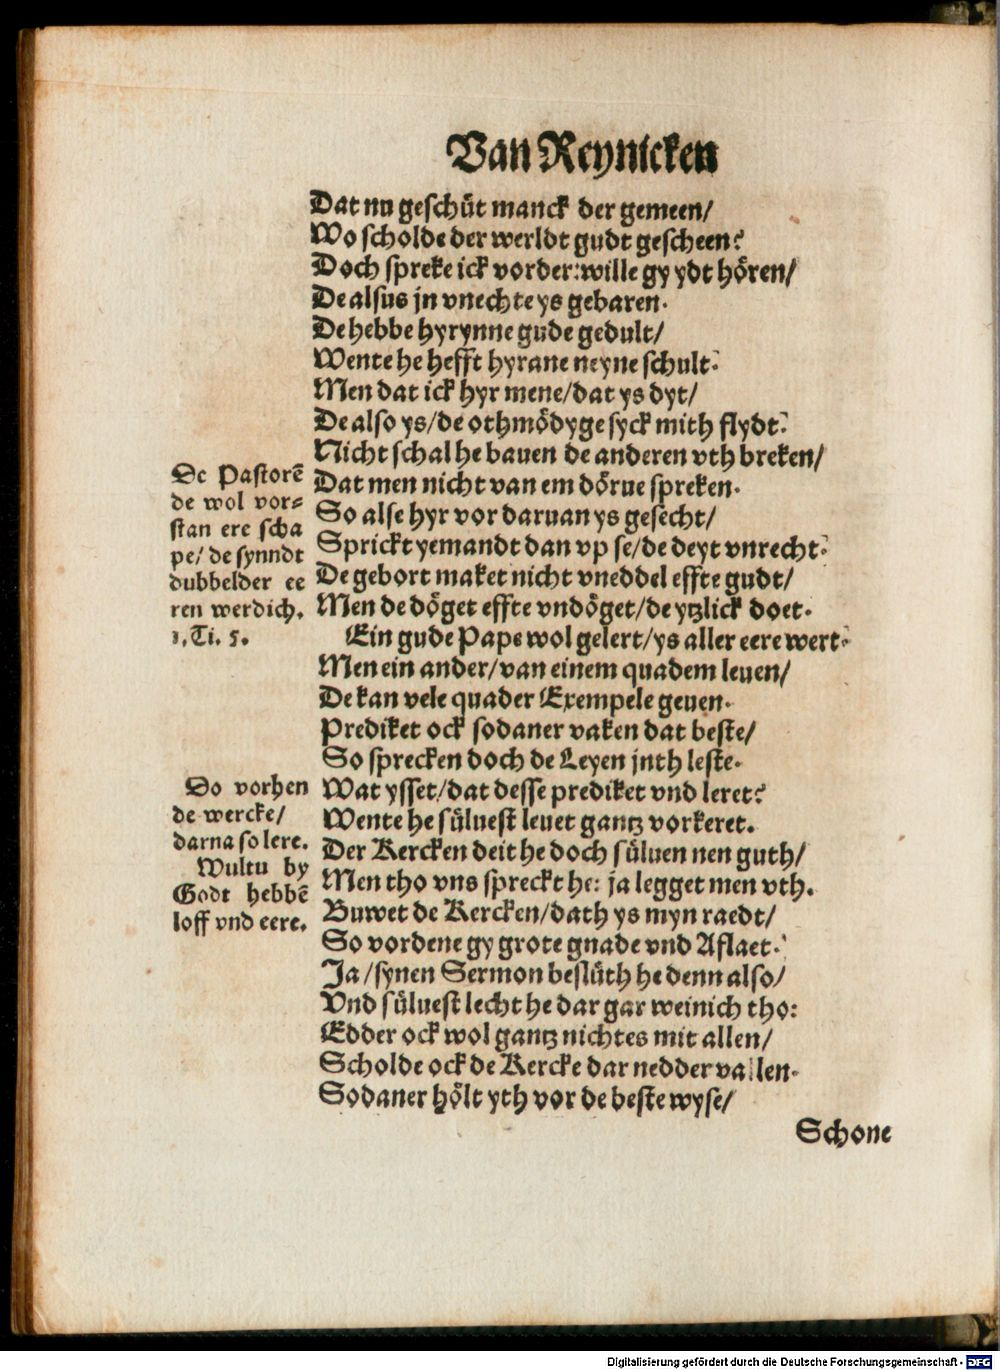 Van Reynicken
Dat nu geschüt manck der gemeen/
Wo scholde der werldt gudt gescheen?
Doch spreke ick vorder: wille gy ydt hören/
De alsus jn vnechte ys gebaren.
De hebbe hyrynne gude gedult/
Wente he hefft hyrane neyne schult.
Men dat ick hyr mene/dat ys dyt/
De also ys/de othmödyge syck mith flydt.
Nicht schal he bauen de anderen vth breken/
Dat men nicht van em dörue spreken.
So alse hyr vor daruan ys gesecht/
Sprickt yemandt dan vp se/de deyt vnrecht.
De gebort maket nicht vneddel effte gudt/
Men de döget effte vndöget/de ytzlick doet.
Ein gude Pape wol gelert/ys aller eere wert.
Men ein ander/van einem quadem leuen/
De kan vele quader Exempele geuen.
Prediket ock sodaner vaken dat beste/
So sprecken doch de Leyen jnth leste.
Wat ysset/dat desse prediket vnd leret?
Wente he süluest leuet gantz vorkeret.
Der Kercken deit he doch süluen nen guth/
Men tho vns spreckt he: ja legget men vth.
Buwet de Kercken/dath ys myn raedt/
So vordene gy grote gnade vnd Aflaet.
Ja/synen Sermon beslüth he denn also/
Vnd süluest lecht he dar gar weinich tho:
Edder ock wol gantz nichtes mit allen/
Scholde ock de Kercke dar nedder vallen.
Sodaner hölt yth vor de beste wyse/
Schone
De Pastorē
de wol vor⸗
stan ere scha
pe/ de synndt
dubbelder ee
ren werdich.
1. Ti. 5.
Do vorhen
de wercke/
darna so lere.
Wultu by
Godt hebbē
loff vnd eere.
Digitalisierung gefördert durch die Deutsche Forschungsgemeinschaft - DFG